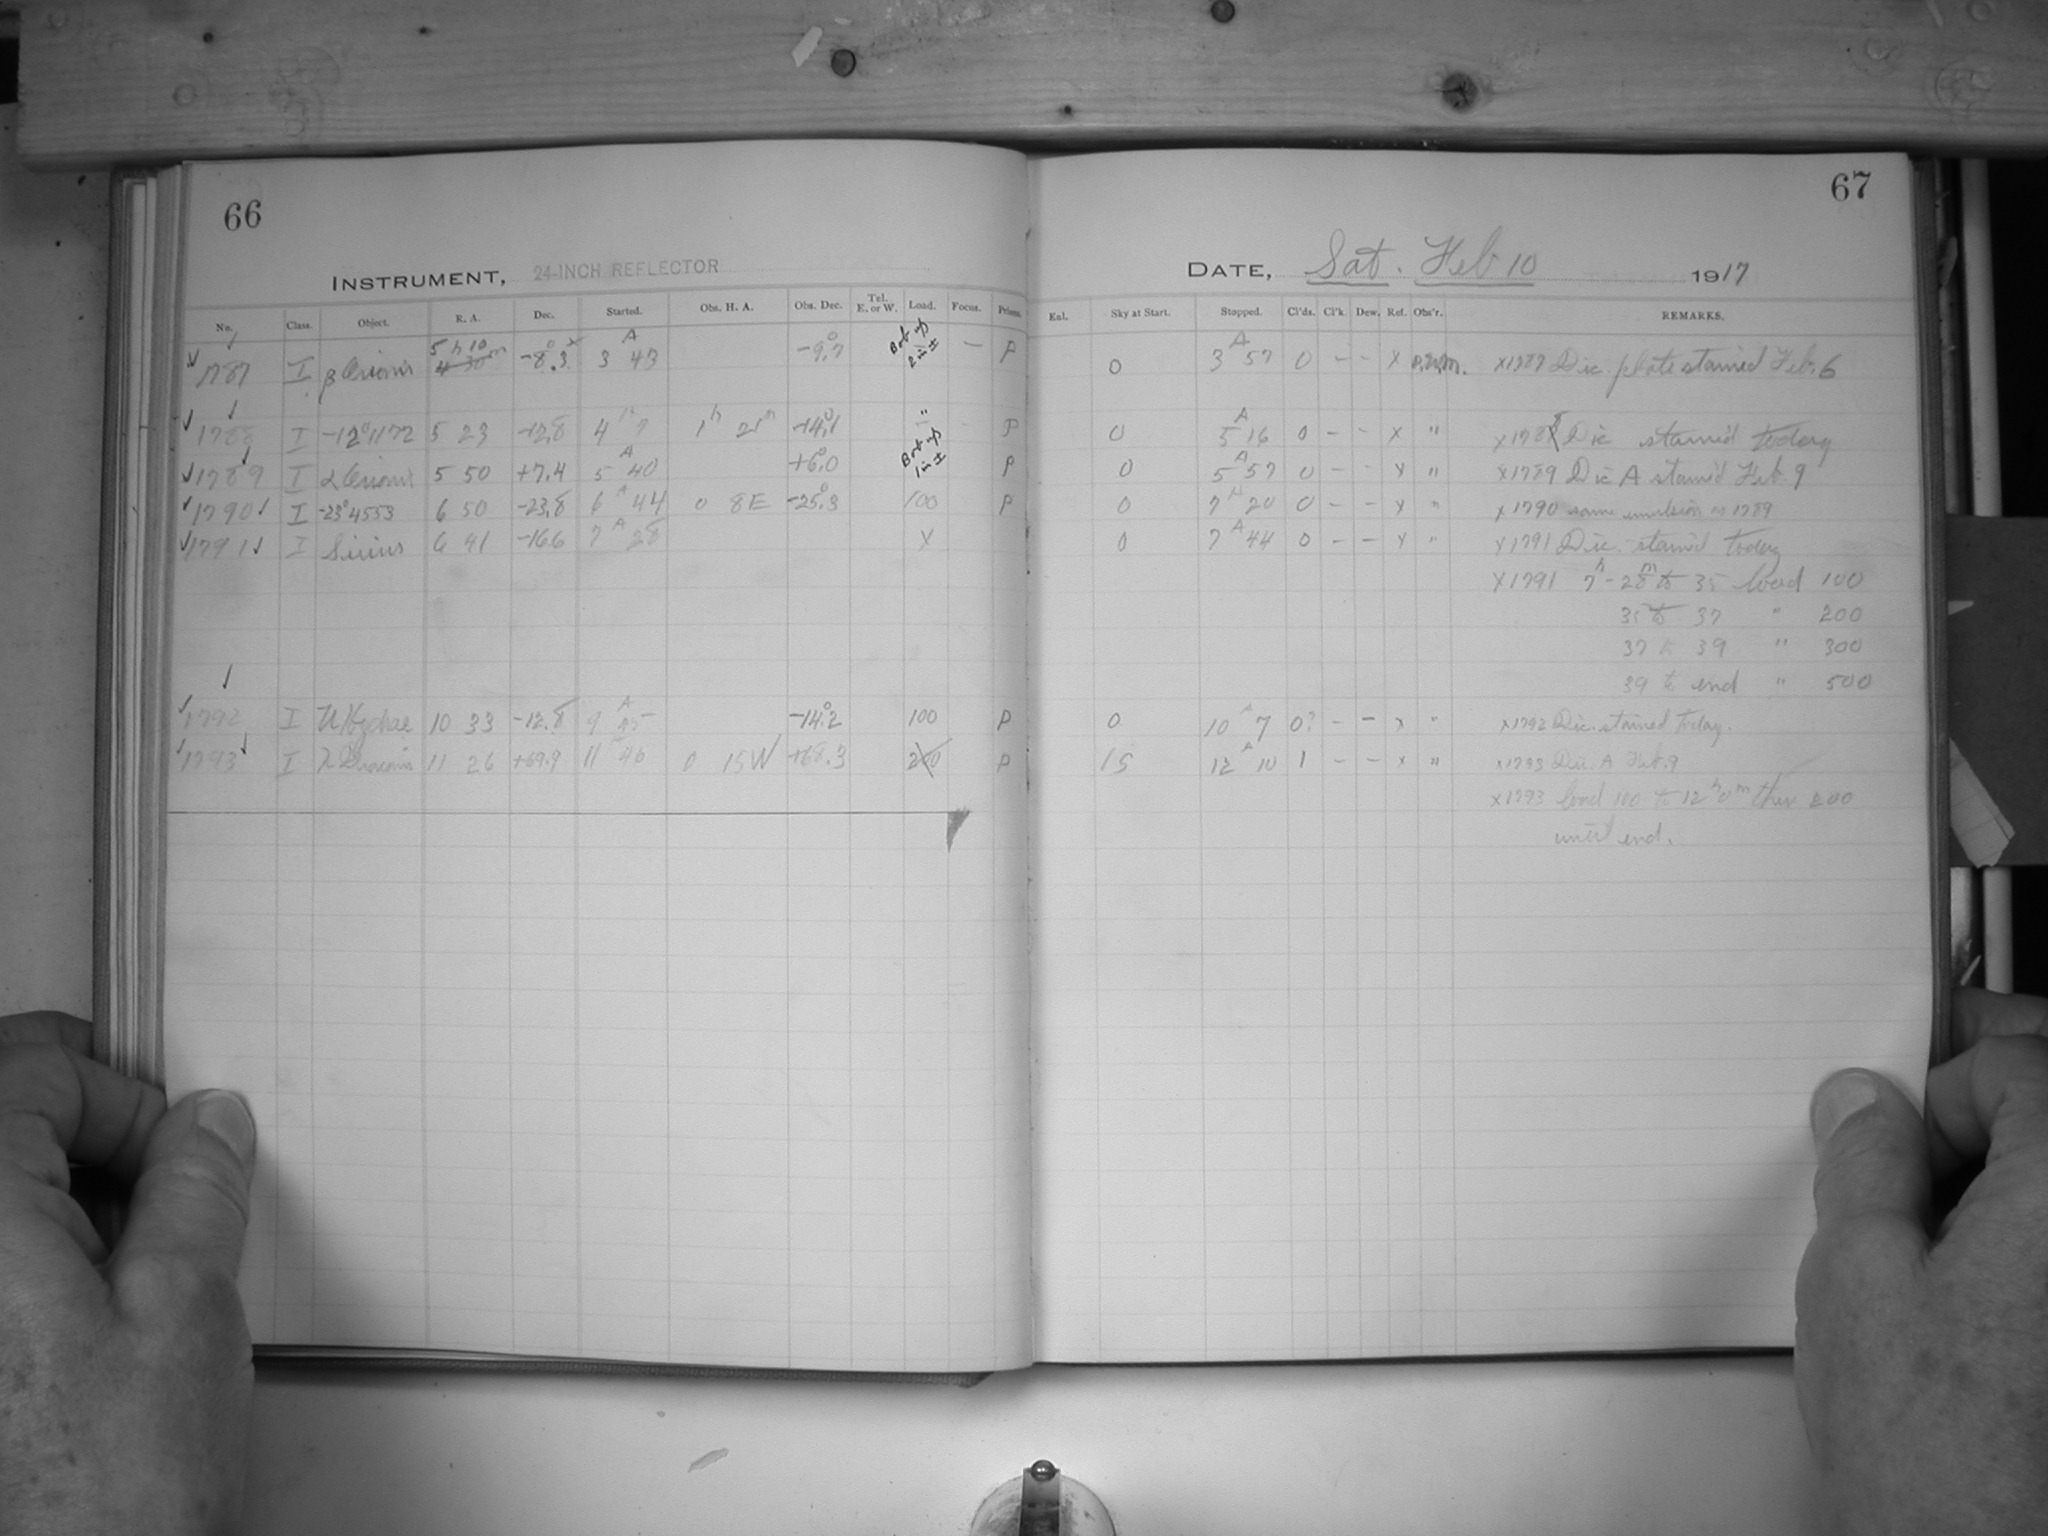 66
INSTRUMENT, 24-INCH REFLECTOR
No. Class. Object. R. A. Dec. Started. Obs. H. A. Obs. Dec. Tel. E. or W. Load. Focus. Prism.
1787 I β Orionis 5h 10m 4 30 -8°.3 3 A 43 -9°.7 Bob up 2 in ± — P
1788 I -12°1172 5 23 -12.8 4 7 1h 21m -14°.1 " P
1789 I α Orionis 5 50 +7.4 5 A 40 +6°.0 Bob up 1 in ± P
1790 I -23°4553 6 50 -23.8 6 A 44 0 8E -25°.3 100 P
1791 I Sirius 6 41 -16.6 7 A 28 X
1792 I U Hydrae 10 33 -12.8 9 A -14°.2 100 P
1793 I λ Draconis 11 26 +69.9 11 46 0 15W +68.3 200 P
67
DATE, Sat. Feb 10 1917
Eal. Sky at Start. Stopped. Cl'ds. Cl'k. Dew. Ref. Obs'r. REMARKS.
0 3 A 57 0 - - x x1787 Dic. plate stained Feb. 6
0 5 A 16 0 - - x " x1788 Dic stained today
0 5 A 57 0 - - x " x1789 Dic A stained Feb. 9
0 7 A 20 0 - - x " x1790 same emulsion as 1789
0 7 A 44 0 - - x " x1791 Dic. stained today
X1791 7h - 28m to 35 load 100
35 to 37 " 200
37 to 39 " 300
39 to end " 500
0 10 A 7 0? - - x " x1792 Dic. stained today.
15 12 A 10 1 - - x " x1793 Dic. A Feb. 9
x1793 load 100 to 12h 0m then 200
until end.